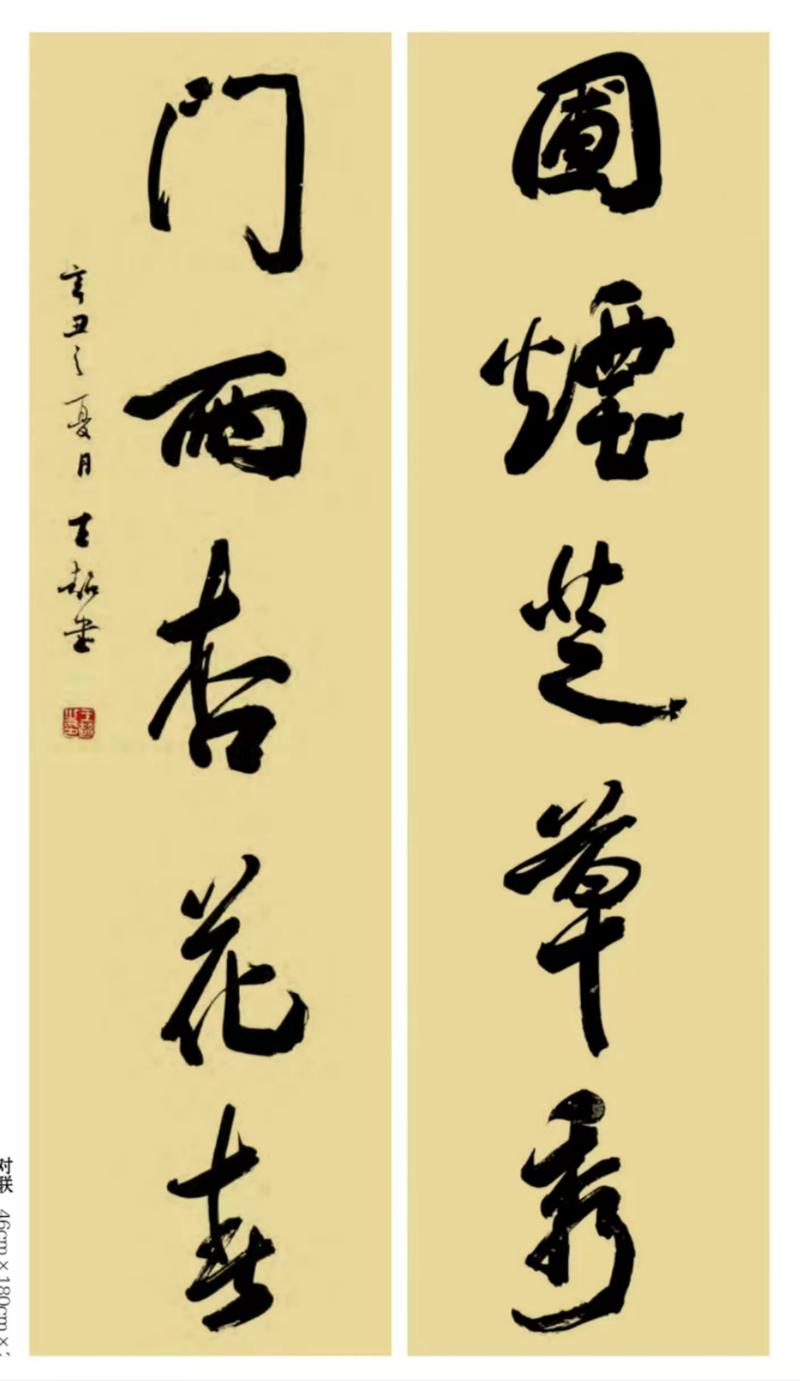 圃煙芝草秀
门雨杏花春
辛丑之夏月王超书
对联 46cm×180cm×